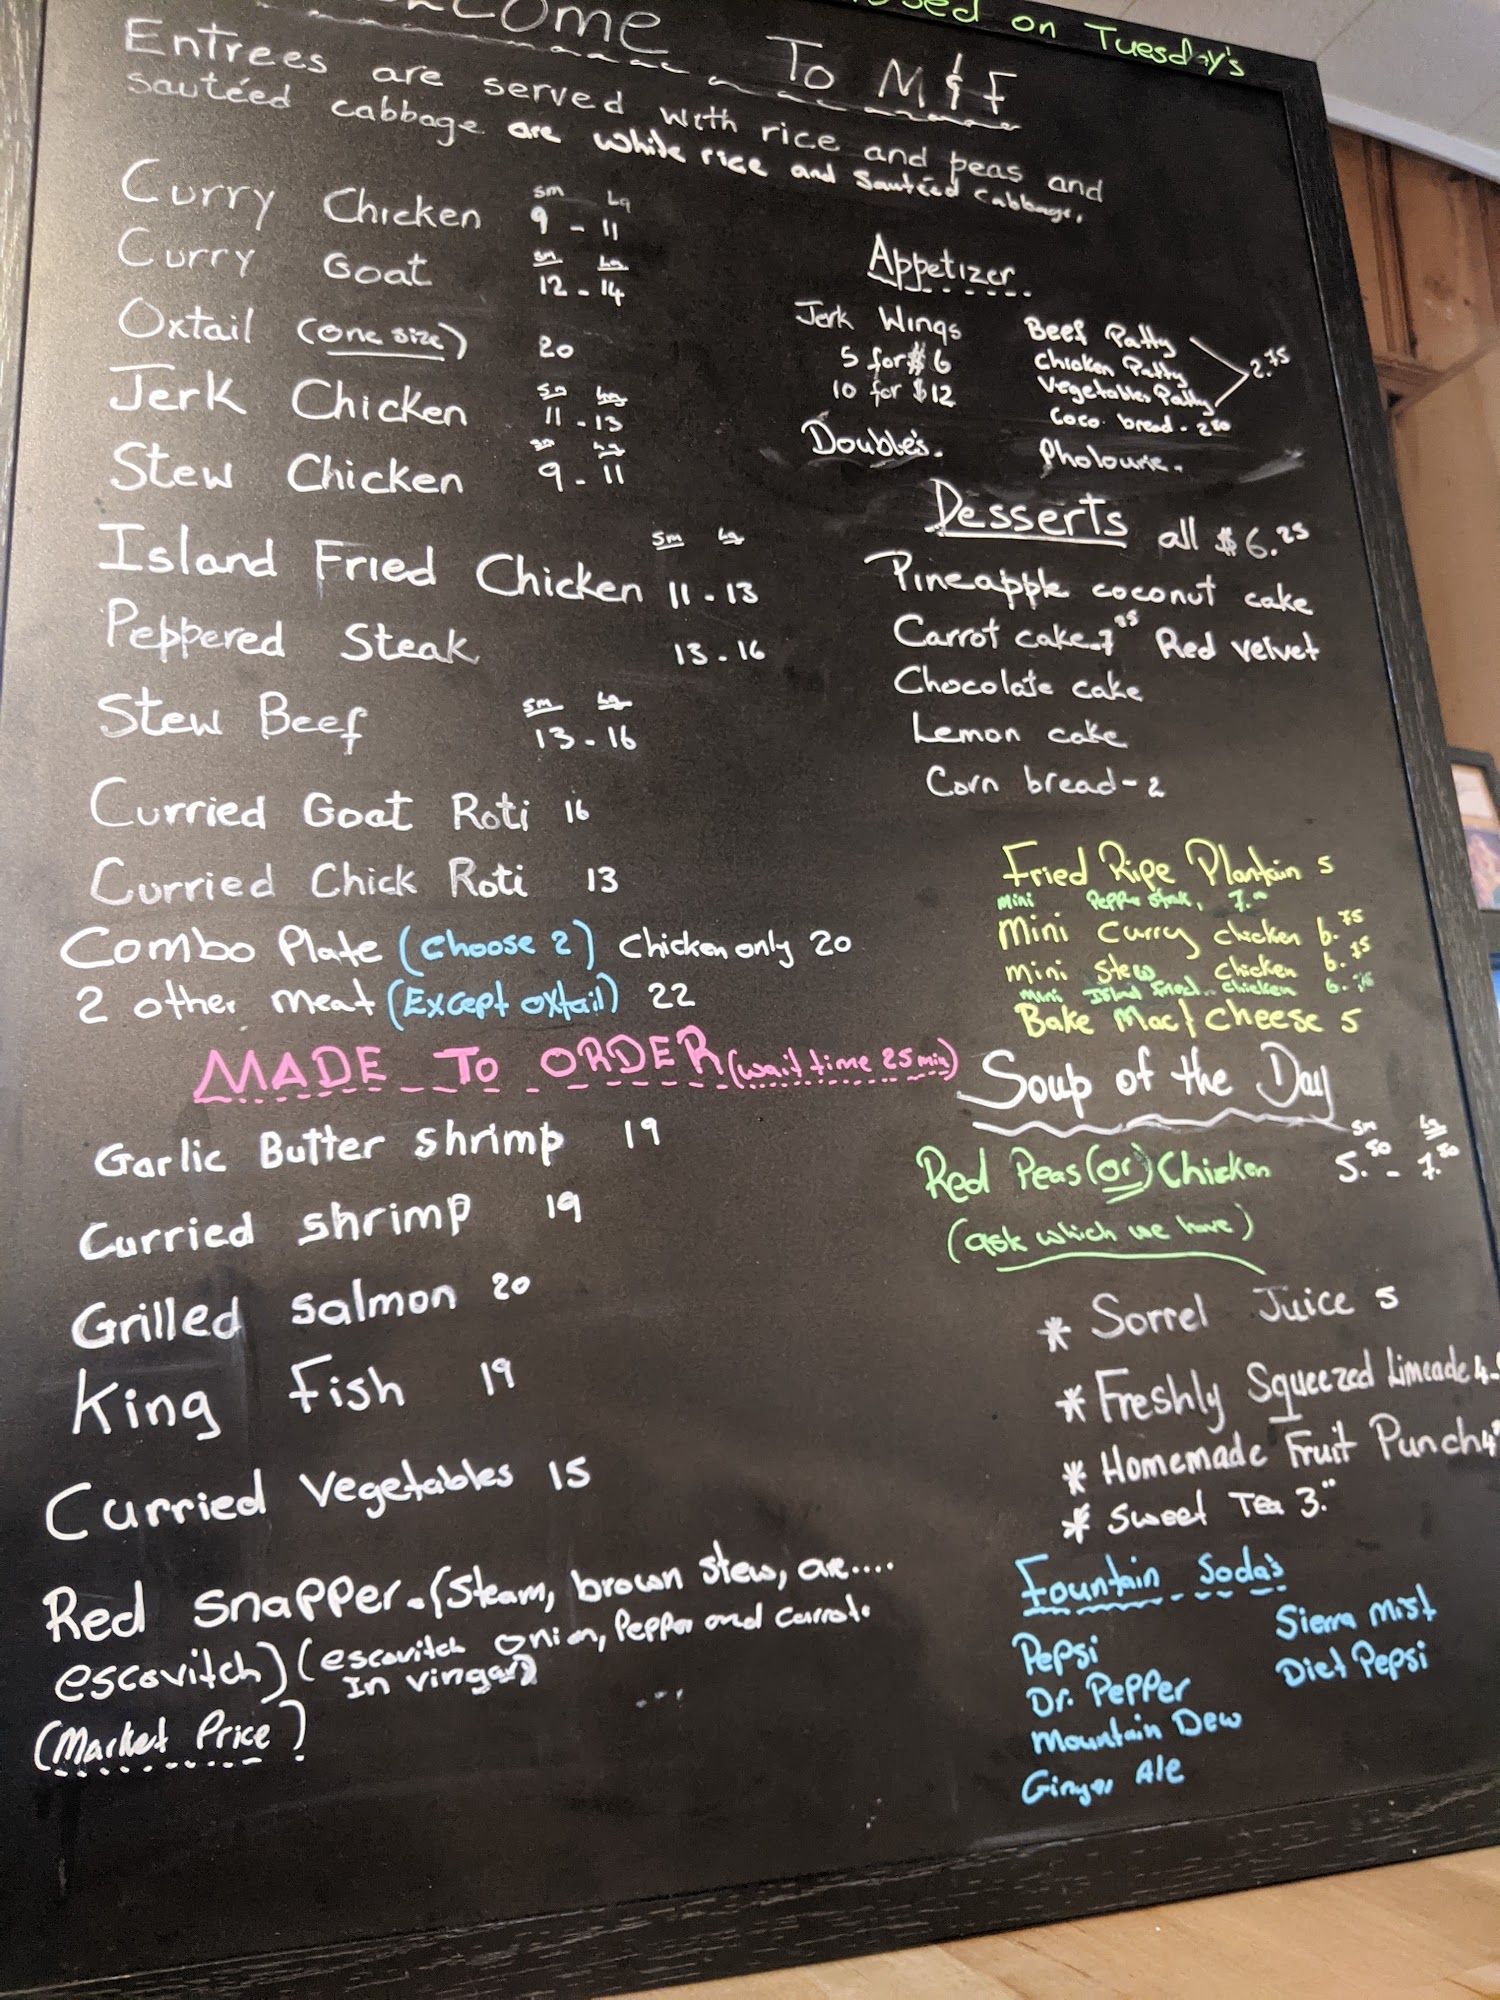 on Tuesday's
To M & F
Entrees are served with rice and peas and
sautéed cabbage are white rice and sautéed cabbage.
Curry Chicken sm 9 - Lg 11
Curry Goat sm 12 - Lg 14
Oxtail (one size) 20
Jerk Chicken sm 11 - Lg 13
Stew Chicken sm 9 - Lg 11
Island Fried Chicken sm 11 - Lg 13
Peppered Steak 13 - 16
Stew Beef sm 13 - Lg 16
Curried Goat Roti 16
Curried Chick Roti 13
Combo Plate (choose 2) Chicken only 20
2 other meat (Except oxtail) 22
MADE To ORDER (wait time 25 min)
Garlic Butter shrimp 19
Curried shrimp 19
Grilled salmon 20
King Fish 19
Curried Vegetables 15
Red snapper - (steam, brown stew, are....
escovitch) (escovitch onion, Pepper and carrots
In vingar)
(Market Price)
Appetizer
Jerk Wings
5 for $6
10 for $12
Doubles.
Beef Patty
Chicken Patty 2.75
Vegetables Patty
Coco bread - 2.50
Pholourie.
Desserts all $6.25
Pineapple coconut cake
Carrot cake - 7 Red velvet
Chocolate cake
Lemon cake
Corn bread - 2
Fried Ripe Plantain 5
mini Pepper steak, 7.00
Mini curry chicken 6.75
mini stew chicken 6.75
mini Island fried chicken 6.75
Bake Mac & cheese 5
Soup of the Day
Red Peas (or) Chicken sm 5.50 - Lg 7.50
(ask which we have)
* Sorrel Juice 5
* Freshly Squeezed Limeade 4
* Homemade Fruit Punch 4
* Sweet Tea 3.
Fountain Soda's
Pepsi
Dr. Pepper
Mountain Dew
Ginger Ale
Sierra Mist
Diet Pepsi